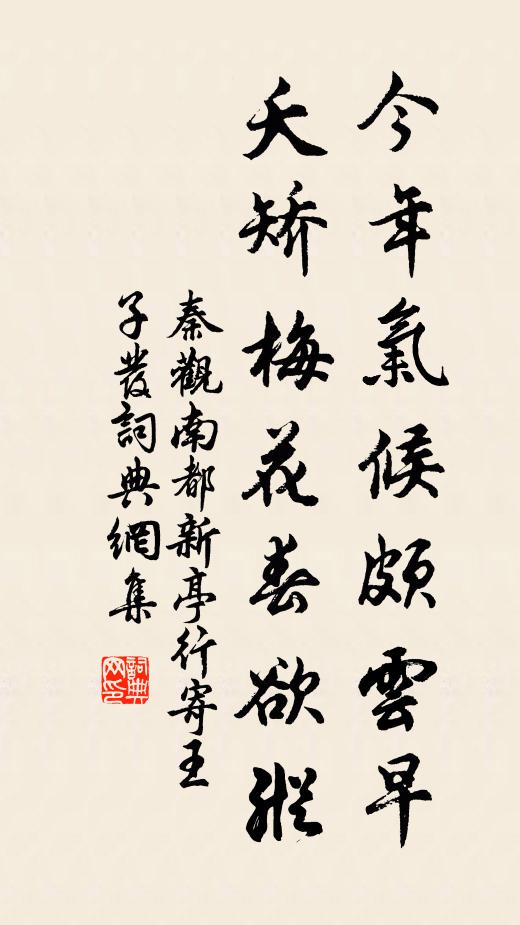 今年氣候頗雲早
夭矯梅花春欲縱
秦觀南都新亭行寄王
子發詞典網集
詞典网印